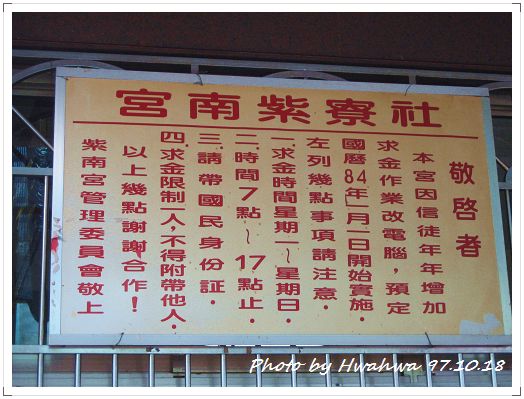 社寮紫南宮
敬啓者
本宮因信徒年年增加
求金作業改電腦，預定
國曆84年一月一日開始實施．
左列幾點事項請注意．
一.求金時間星期一～星期日．
二.時間7點～17點止．
三.請帶國民身份証．
四.求金限制一人，不得附帶他人．
以上幾點謝謝合作！
紫南宮管理委員會敬上
Photo by Hwahwa 97.10.18